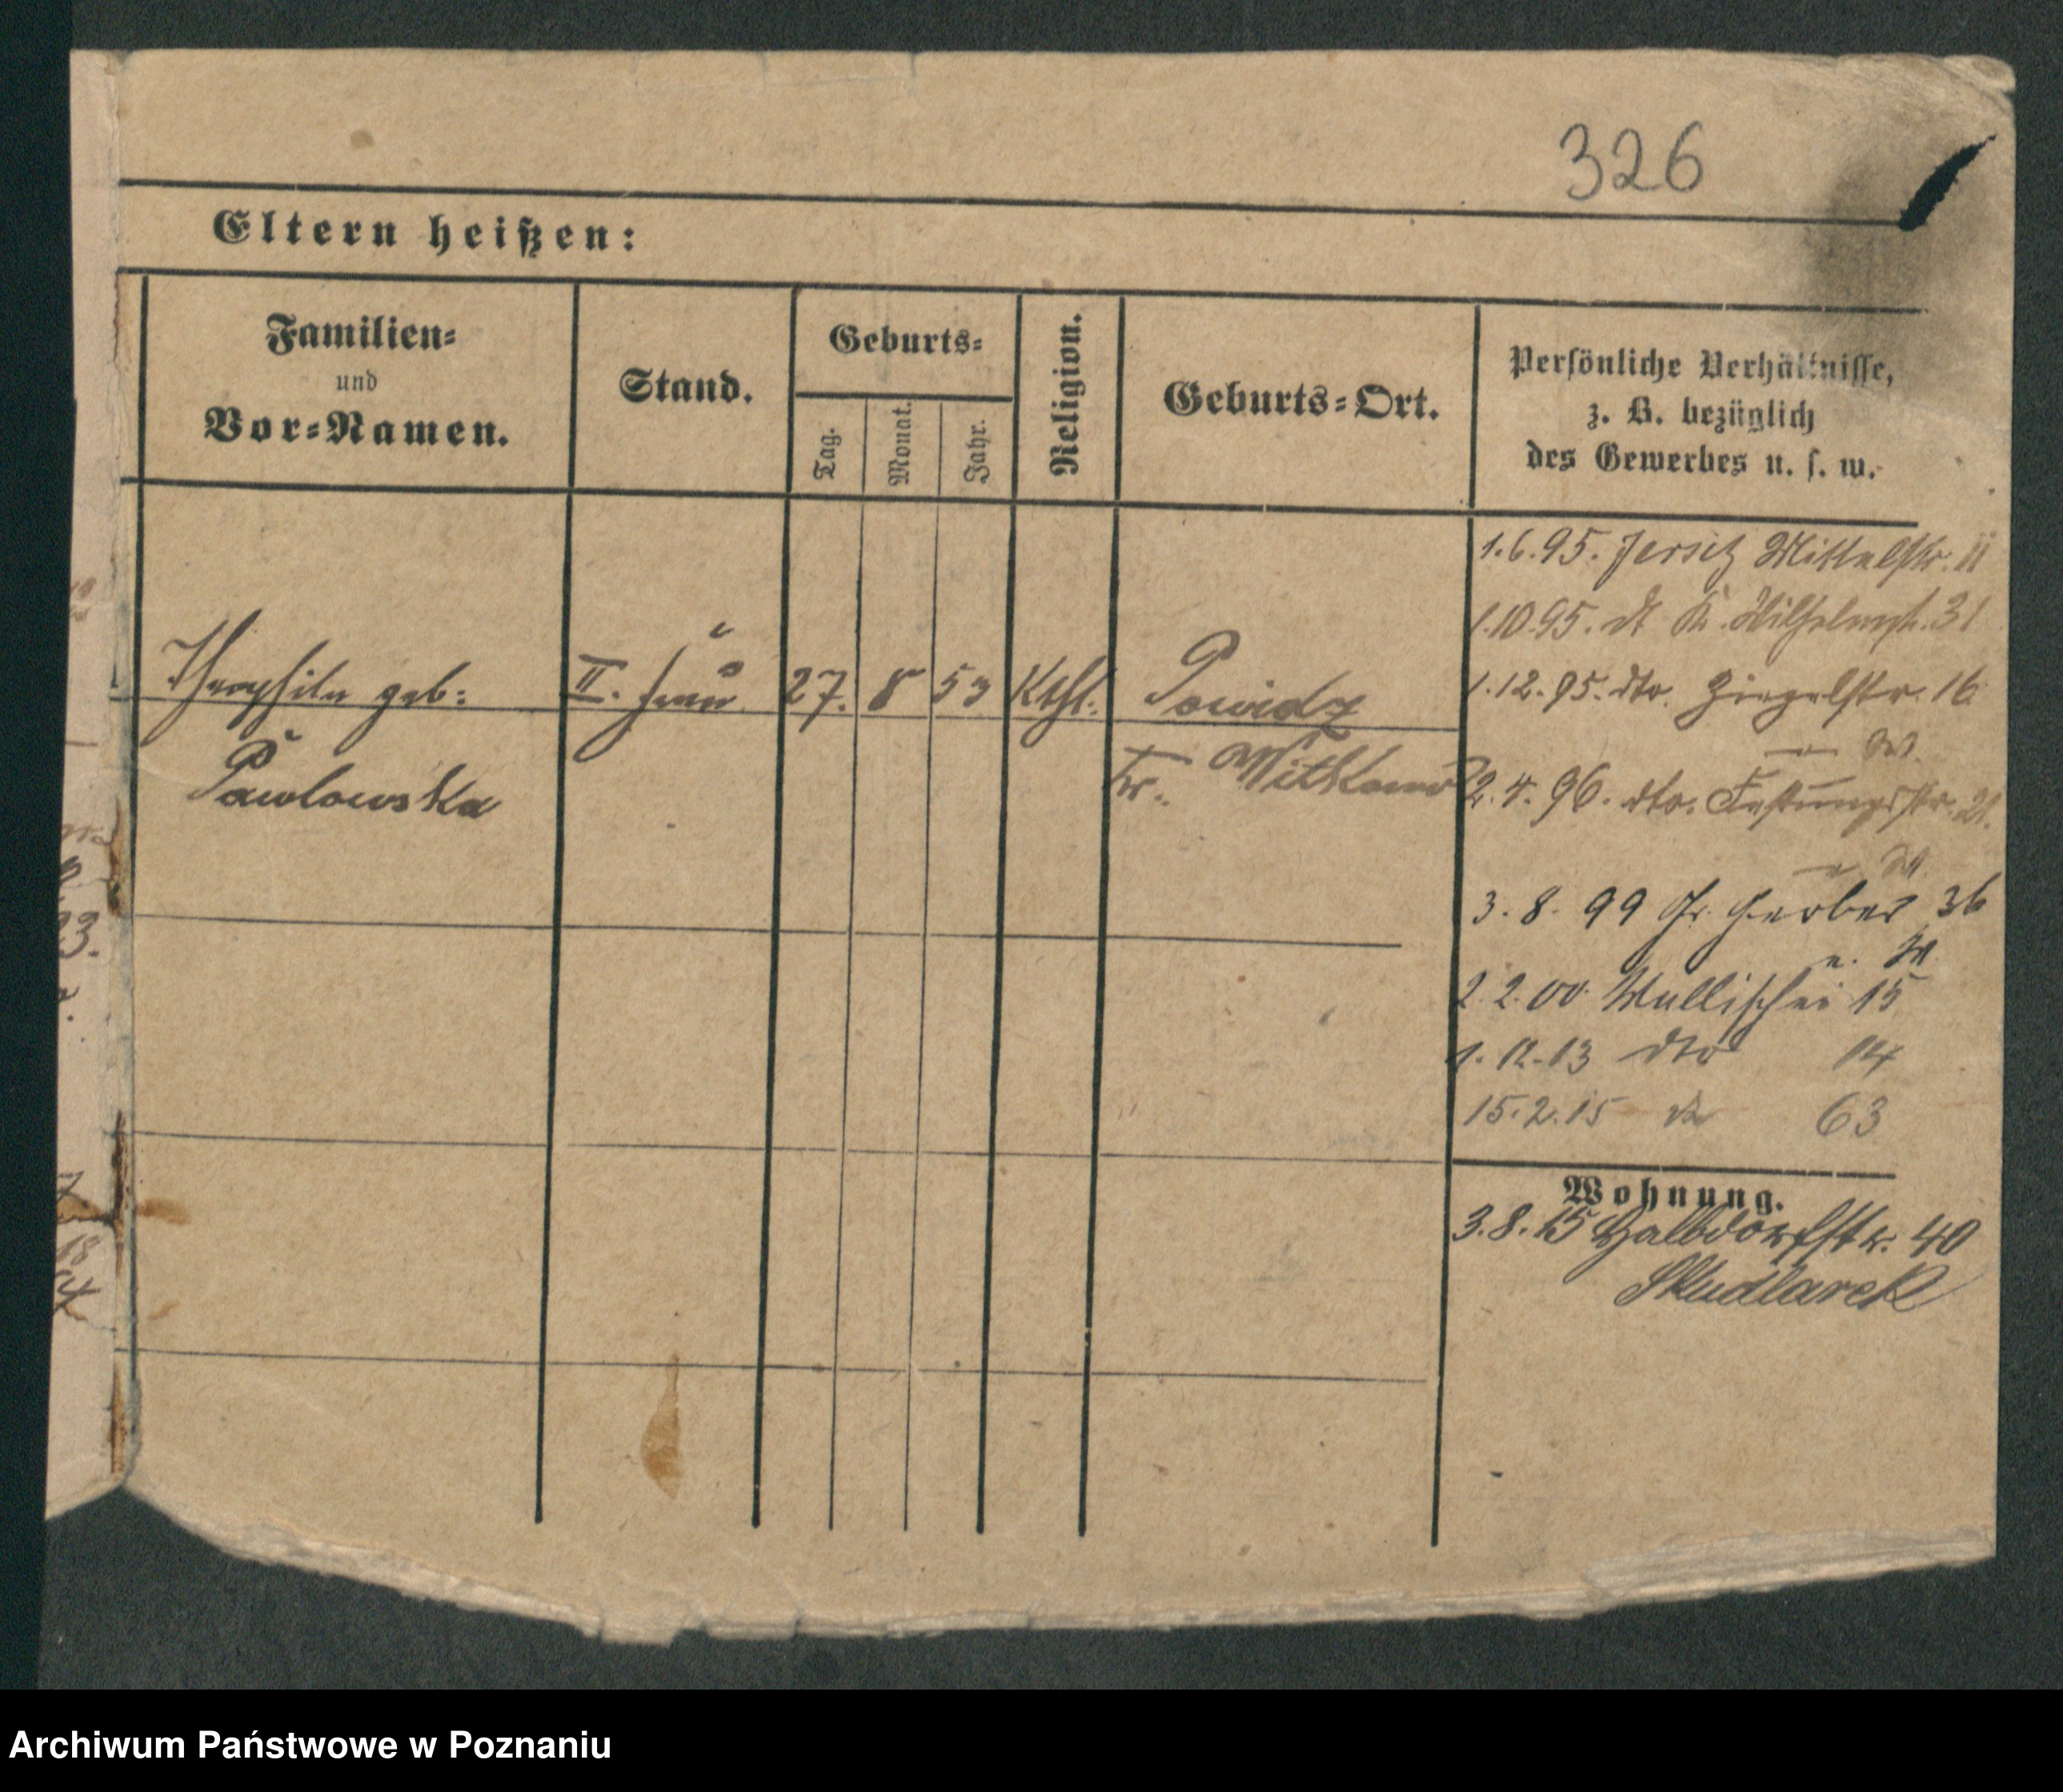 326
Eltern heißen:
Familien=
und
Vor=Namen.
Stand.
Geburts=
Tag.
Monat.
Jahr.
Religion.
Geburts=Ort.
Persönliche Verhältnisse,
z. B. bezüglich
des Gewerbes u. s. w.
Theophila geb:
Pawlowska
II. Frau
27. 8 53
Kthl.
Powidz
Kr. Witkowo
1.6.95. Jersitz Mittelstr. 11
1.10.95. dt K. Wilhelmstr. 31
1.12.95. dto. Ziegelstr. 16
2.4.96. dto. Festungsstr. 21.
3.8.99 Gr. Gerber 36
2.2.00. Wallischei 15
1.12.13 dto 14
15.2.15 63
Wohnung.
3.8.15 Halbdorfstr. 40
Skudlarek
Archiwum Państwowe w Poznaniu